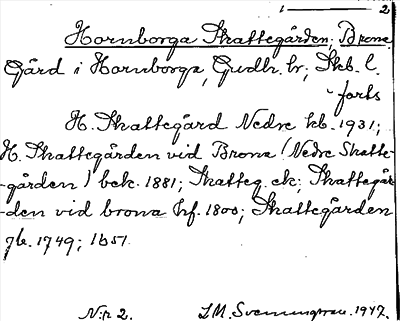 1 — 2
Hornborga Skattegården; Brona
Gård i Hornborga, Gudh. hr; Skb. l.
forts
H. Skattegård Nedre hb. 1931;
H. Skattegården vid Brona (Nedre Skatte-
-gården) bek. 1881; Skatteg. ek; Skattegår-
-den vid brona hf. 1800; Skattegården
jb. 1749; 1651.
N:r 2. I.M. 1947.